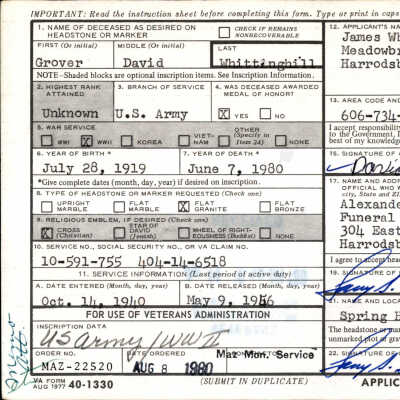 IMPORTANT: Read the instruction sheet before completing this form. Type or print in caps
1. NAME OF DECEASED AS DESIRED ON HEADSTONE OR MARKER
CHECK IF REMAINS NONRECOVERABLE
FIRST (Or initial) MIDDLE (Or initial) LAST
Grover David Whittinghill
NOTE-Shaded blocks are optional inscription items. See Inscription Information.
2. HIGHEST RANK ATTAINED 3. BRANCH OF SERVICE 4. WAS DECEASED AWARDED MEDAL OF HONOR?
Unknown U.S. Army X YES NO
5. WAR SERVICE
WWI X WWII KOREA VIET-NAM OTHER (Specify in Item 24)
6. YEAR OF BIRTH* 7. YEAR OF DEATH*
July 28, 1919 June 7, 1980
*Give complete dates (month, day, year) if desired on inscription.
8. TYPE OF HEADSTONE OR MARKER REQUESTED (Check one)
UPRIGHT MARBLE FLAT MARBLE X FLAT GRANITE FLAT BRONZE
9. RELIGIOUS EMBLEM, IF DESIRED (Check one)
X CROSS (Christian) STAR OF DAVID (Jewish) WHEEL OF RIGHT-EOUSNESS (Buddhist) None
10. SERVICE NO., SOCIAL SECURITY NO., OR VA CLAIM NO.
10-591-755 404-14-6518
11. SERVICE INFORMATION (Last period of active duty)
A. DATE ENTERED (Month, day, year) B. DATE RELEASED (Month, day, year)
Oct. 14, 1940 May 9, 1946
FOR USE OF VETERANS ADMINISTRATION
INSCRIPTION DATA
US Army/WW II
ORDER NO. DATE ORDERED
MAZ-22520 AUG 8 1980 Maz Mon. Service
VA FORM AUG 1977 40-1330 (SUBMIT IN DUPLICATE) APPLIC
12. APPLICANT'S NAM
James Wh
Meadowbr
Harrodsb
13. AREA CODE AND
606-734-
I accept responsibility
to the Government, I
best of my knowledge
15. SIGNATURE OF
17. NAME AND ADD
OFFICIAL WHO
city, State and ZI
Alexande
Funeral
304 East
Harrodsb
I agree to accept hea
19. SIGNATURE OF
21. NAME AND LOCA
Spring H
The headstone or ma
unmarked plot or grav
22. SIGNATURE OF